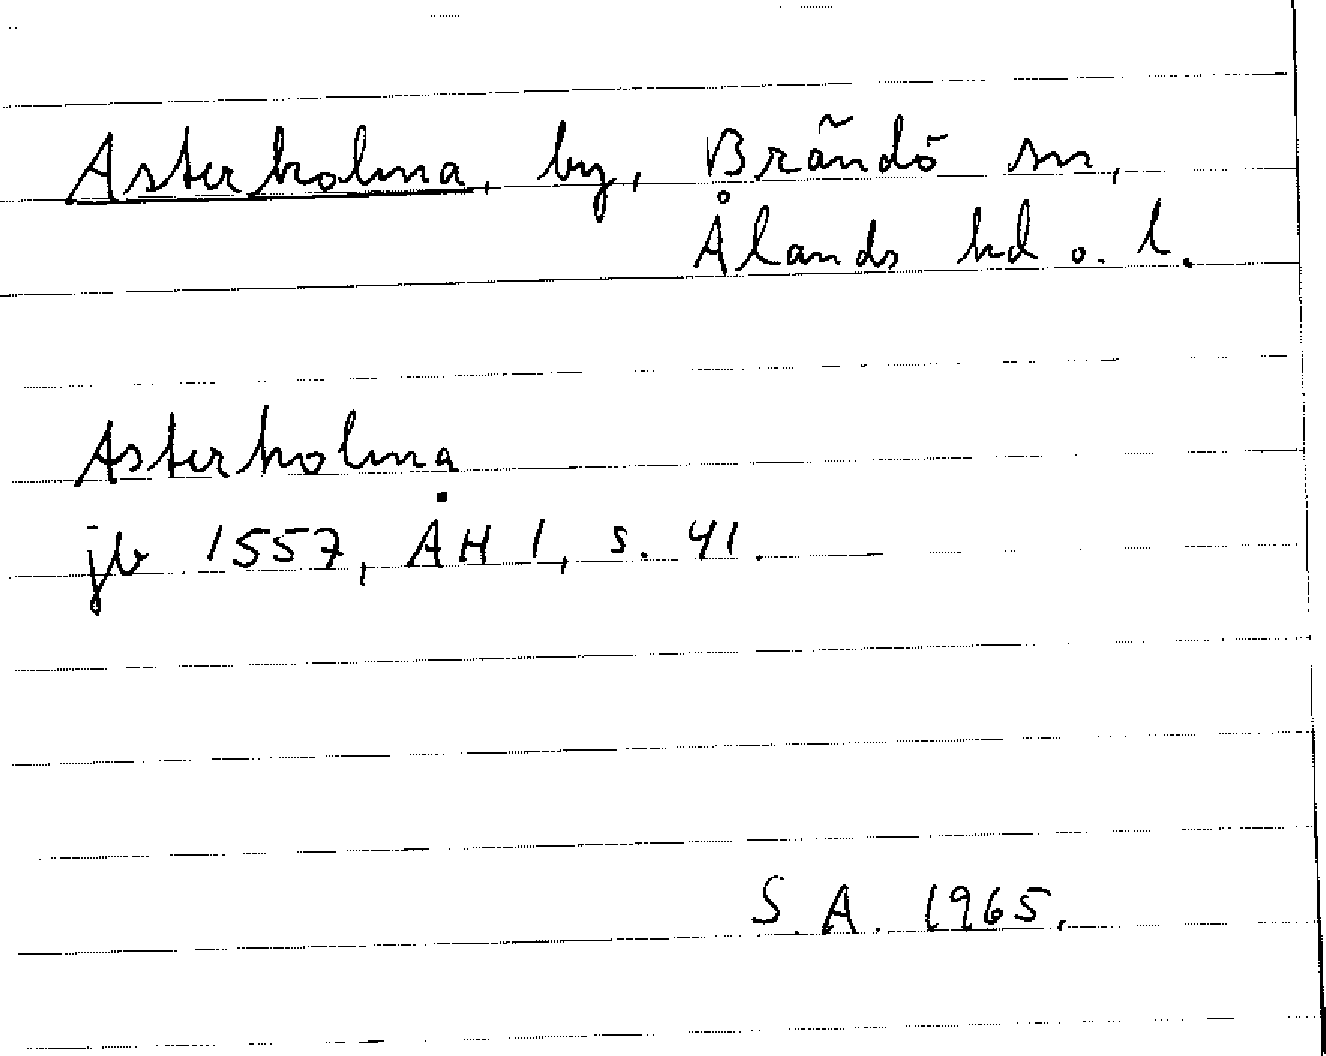 Asterholma, by, Brändö sn,
Ålands hd o. l.
Asterholma
jb 1557, ÅH 1, s. 41.
S. A. 1965.